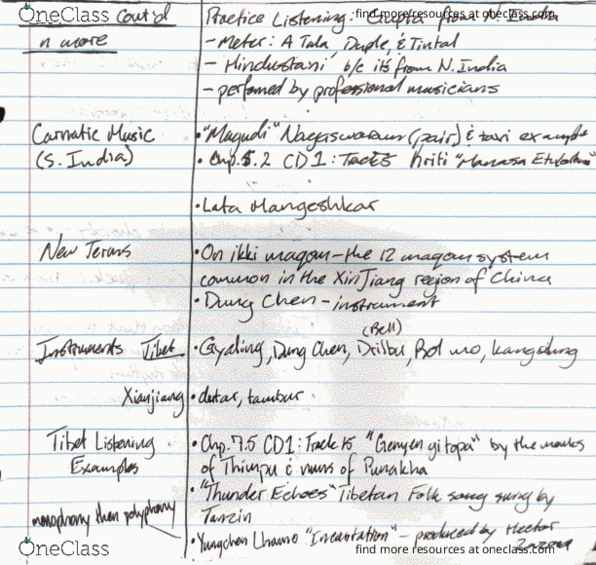 OneClass
find more resources at oneclass.com
cont'd
n more
Practice Listening: from N. India
- Meter: A Tala, Duple, & Tintal
- Hindustani b/c its from N. India
- performed by professional musicians
Carnatic Music
(S. India)
• "Magudi" Nagaswaram (pair) & tavi example
• Chp. 5.2 CD1: Track5 Kriti "Manasa
• Lata Mangeshkar
New Terms
• On ikki maqam - the 12 maqam system
common in the XinJiang region of China
• Dung Chen - instrument
Instruments Tibet
(Bell)
• Gyaling, Dung Chen, Drilbu, Rol mo, kangdung
Xianjiang
• dutar, tambur
Tibet Listening
Examples
• Chp. 7.5 CD1: Track 15 "Genyen gi topa" by the monks
of Thimpu & nuns of Punakha
• "Thunder Echoes" Tibetan Folk song sung by
Tanzin
monophony then polyphony
• Yungchen Lhamo "Incantation" - produced by Hector
Zazou
OneClass
find more resources at oneclass.com